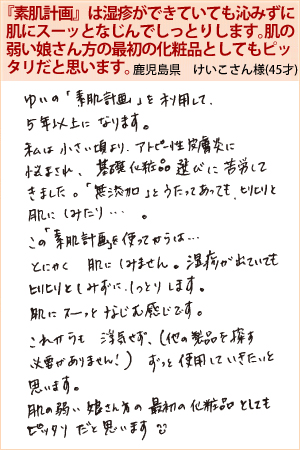 『素肌計画』は湿疹ができていても沁みずに
肌にスーッとなじんでしっとりします。肌の
弱い娘さん方の最初の化粧品としてもピッ
タリだと思います。鹿児島県 けいこさん様(45才)
ゆいの「素肌計画」を利用して、
5年以上になります。
私は小さい頃より、アトピー性皮膚炎に
悩まされ、基礎化粧品選びに苦労して
きました。「無添加」とうたってあっても、ヒリヒリと
肌にしみたり…。
この「素肌計画」を使ってからは…
とにかく 肌にしみません。湿疹が出ていても
ヒリヒリとしみずに、しっとりします。
肌にスーッとなじむ感じです。
これからも 浮気せず、(他の製品を探す
必要がありません!) ずっと使用していきたいと
思います。
肌の弱い娘さん方の最初の化粧品としても
ピッタリだと思います